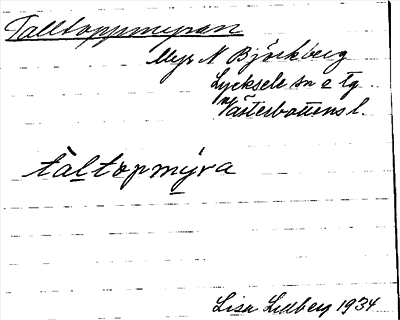 Talltoppmyran
Myr N Björkberg
Lycksele sn o tg
Västerbottens l.
tàltopmýra
Lisa Lidberg 1934